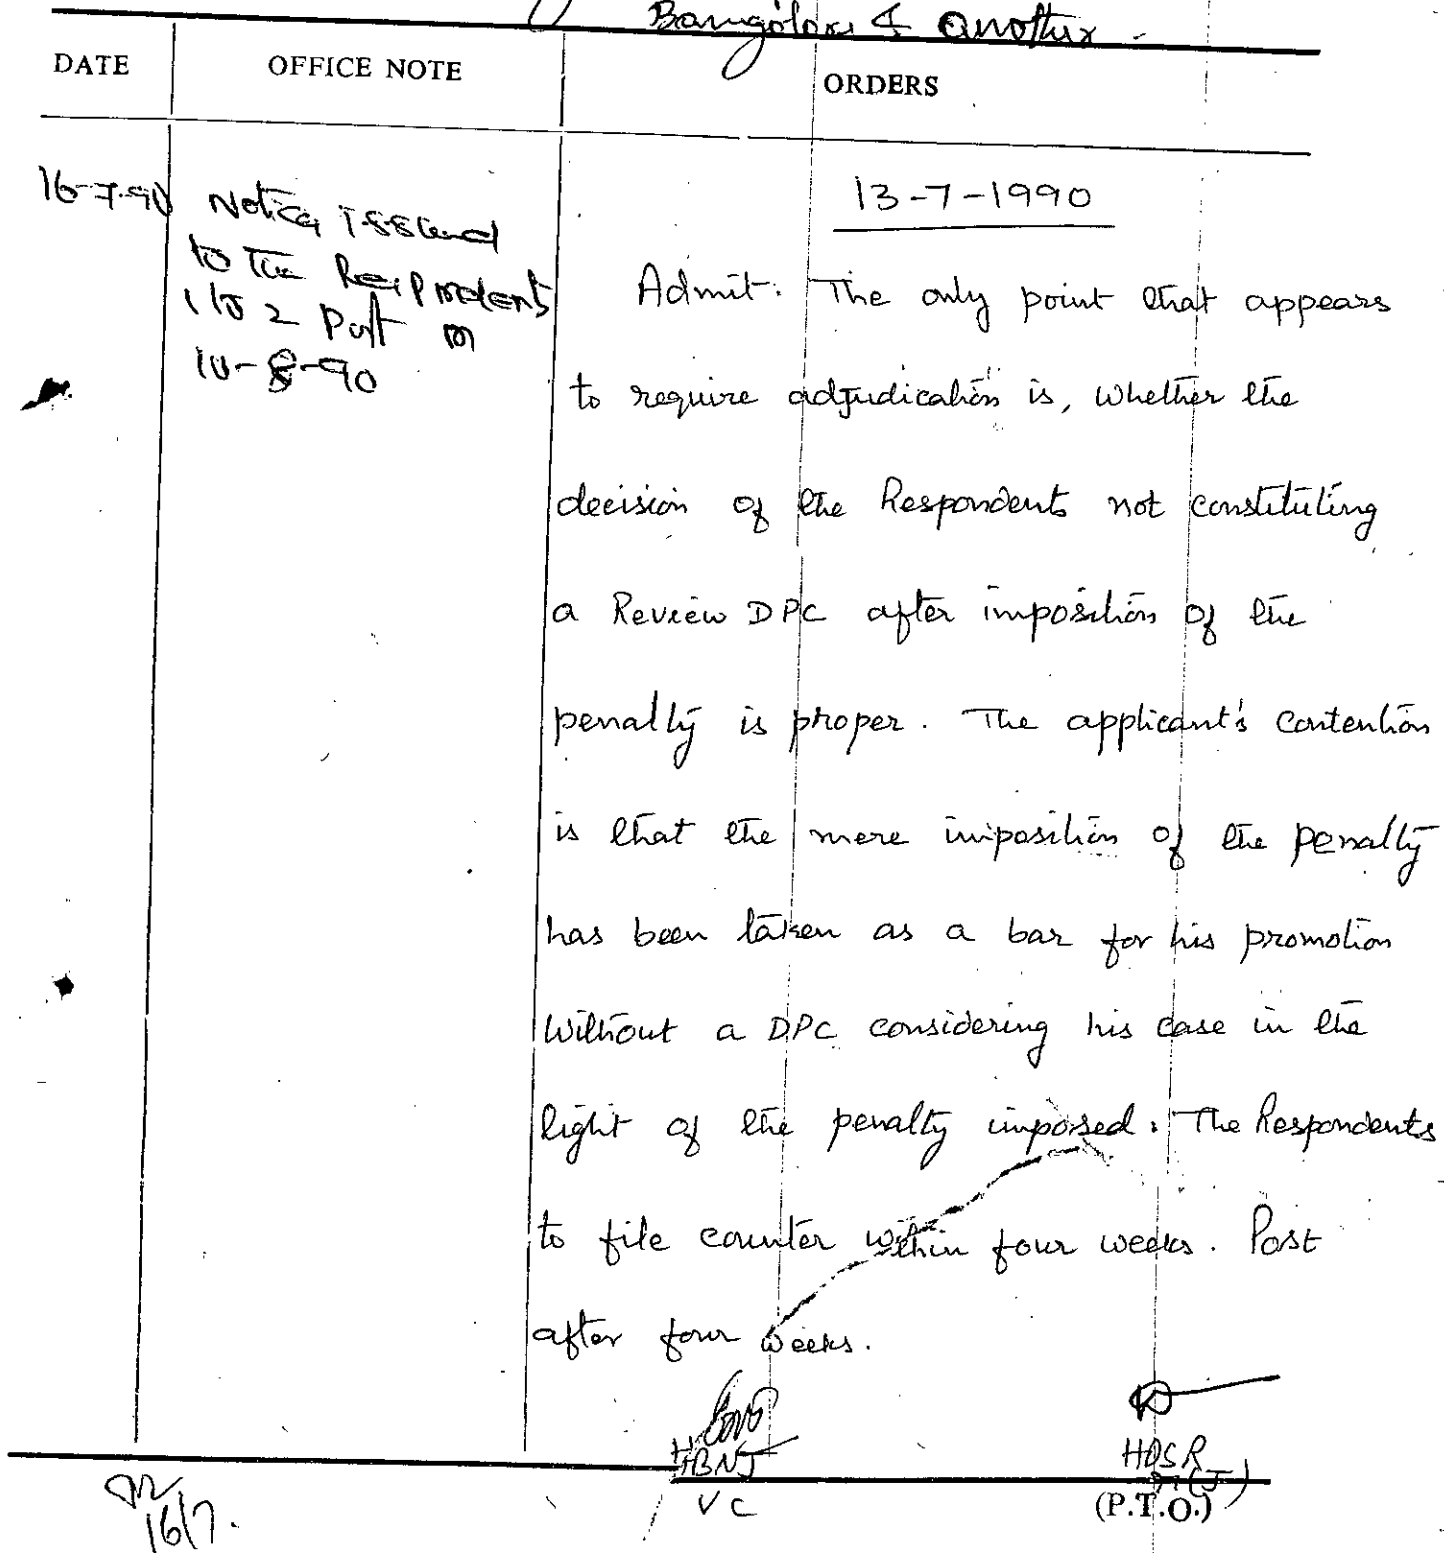 Bangalore & another -
DATE OFFICE NOTE ORDERS
16-7-90 Notice issued
to the Respondents
1 to 2 Post on
10-8-90
13-7-1990
Admit. The only point that appears
to require adjudication is, whether the
decision of the Respondents not constituting
a Review DPC after imposition of the
penalty is proper. The applicant's contention
is that the mere imposition of the penalty
has been taken as a bar for his promotion
without a DPC considering his case in the
light of the penalty imposed. The Respondents
to file counter within four weeks. Post
after four weeks.
HBNJ
VC
HDSR
M(J)
(P.T.O.)
16/7.